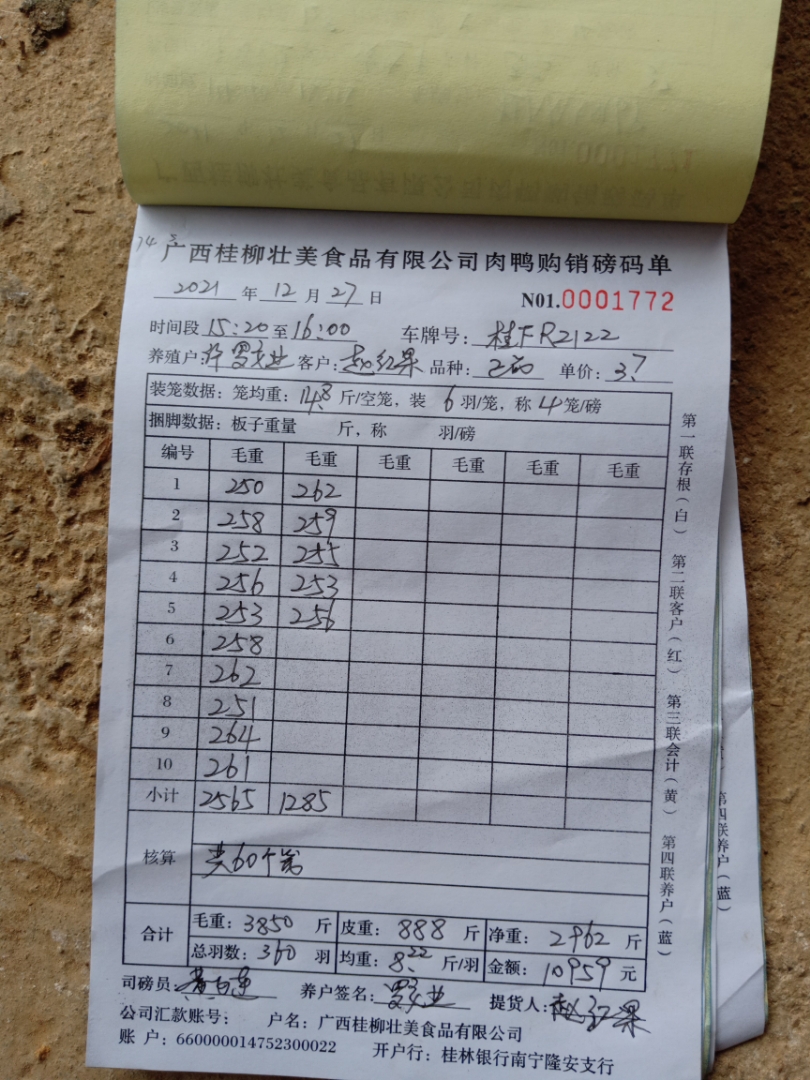 广西桂柳壮美食品有限公司肉鸭购销磅码单
2021 年 12 月 27 日 N01.0001772
时间段 15:20 至 16:00 车牌号: 桂FR2122
养殖户: 罗 业 客户: 赵红果 品种: 单价: 3.7
装笼数据: 笼均重: 14.8 斤/空笼, 装 6 羽/笼, 称 4 笼/磅
捆脚数据: 板子重量 斤, 称 羽/磅
编号 毛重 毛重 毛重 毛重 毛重 毛重
1 250 262
2 258 259
3 252 255
4 256 253
5 253 256
6 258
7 262
8 251
9 264
10 261
小计 2565 1285
核算 共60个笼
合计 毛重: 3850 斤 皮重: 888 斤 净重: 2962 斤
总羽数: 360 羽 均重: 8.22 斤/羽 金额: 10959 元
司磅员: 养户签名: 罗 业 提货人: 赵红果
公司汇款账号: 户名: 广西桂柳壮美食品有限公司
账 户: 660000014752300022 开户行: 桂林银行南宁隆安支行
第一联存根(白) 第二联客户(红) 第三联会计(黄) 第四联养户(蓝)
第四联养户(蓝)